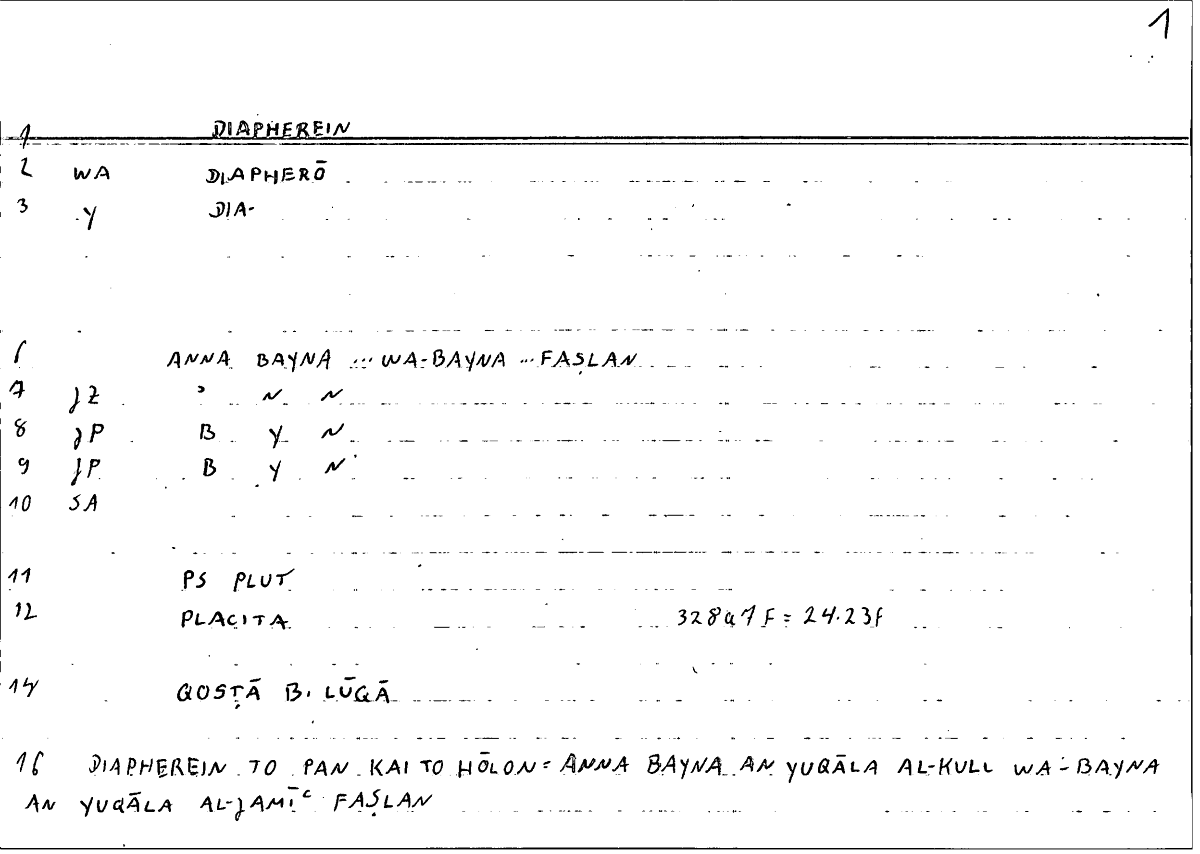 1
1 DIAPHEREIN
2 WA DIAPHERŌ
3 Y DIA-
6 ANNA BAYNA ... WA-BAYNA ... FAṢLAN
7 JZ ʾ N N
8 JP B Y N
9 JP B Y N
10 SA
11 PS PLUT
12 PLACITA 328a7F = 24.23f
14 QOSṬĀ B. LŪQĀ
16 DIAPHEREIN TO PAN KAI TO HŌLON = ANNA BAYNA AN YUQĀLA AL-KULL WA-BAYNA
AN YUQĀLA AL-JAMĪʿ FAṢLAN